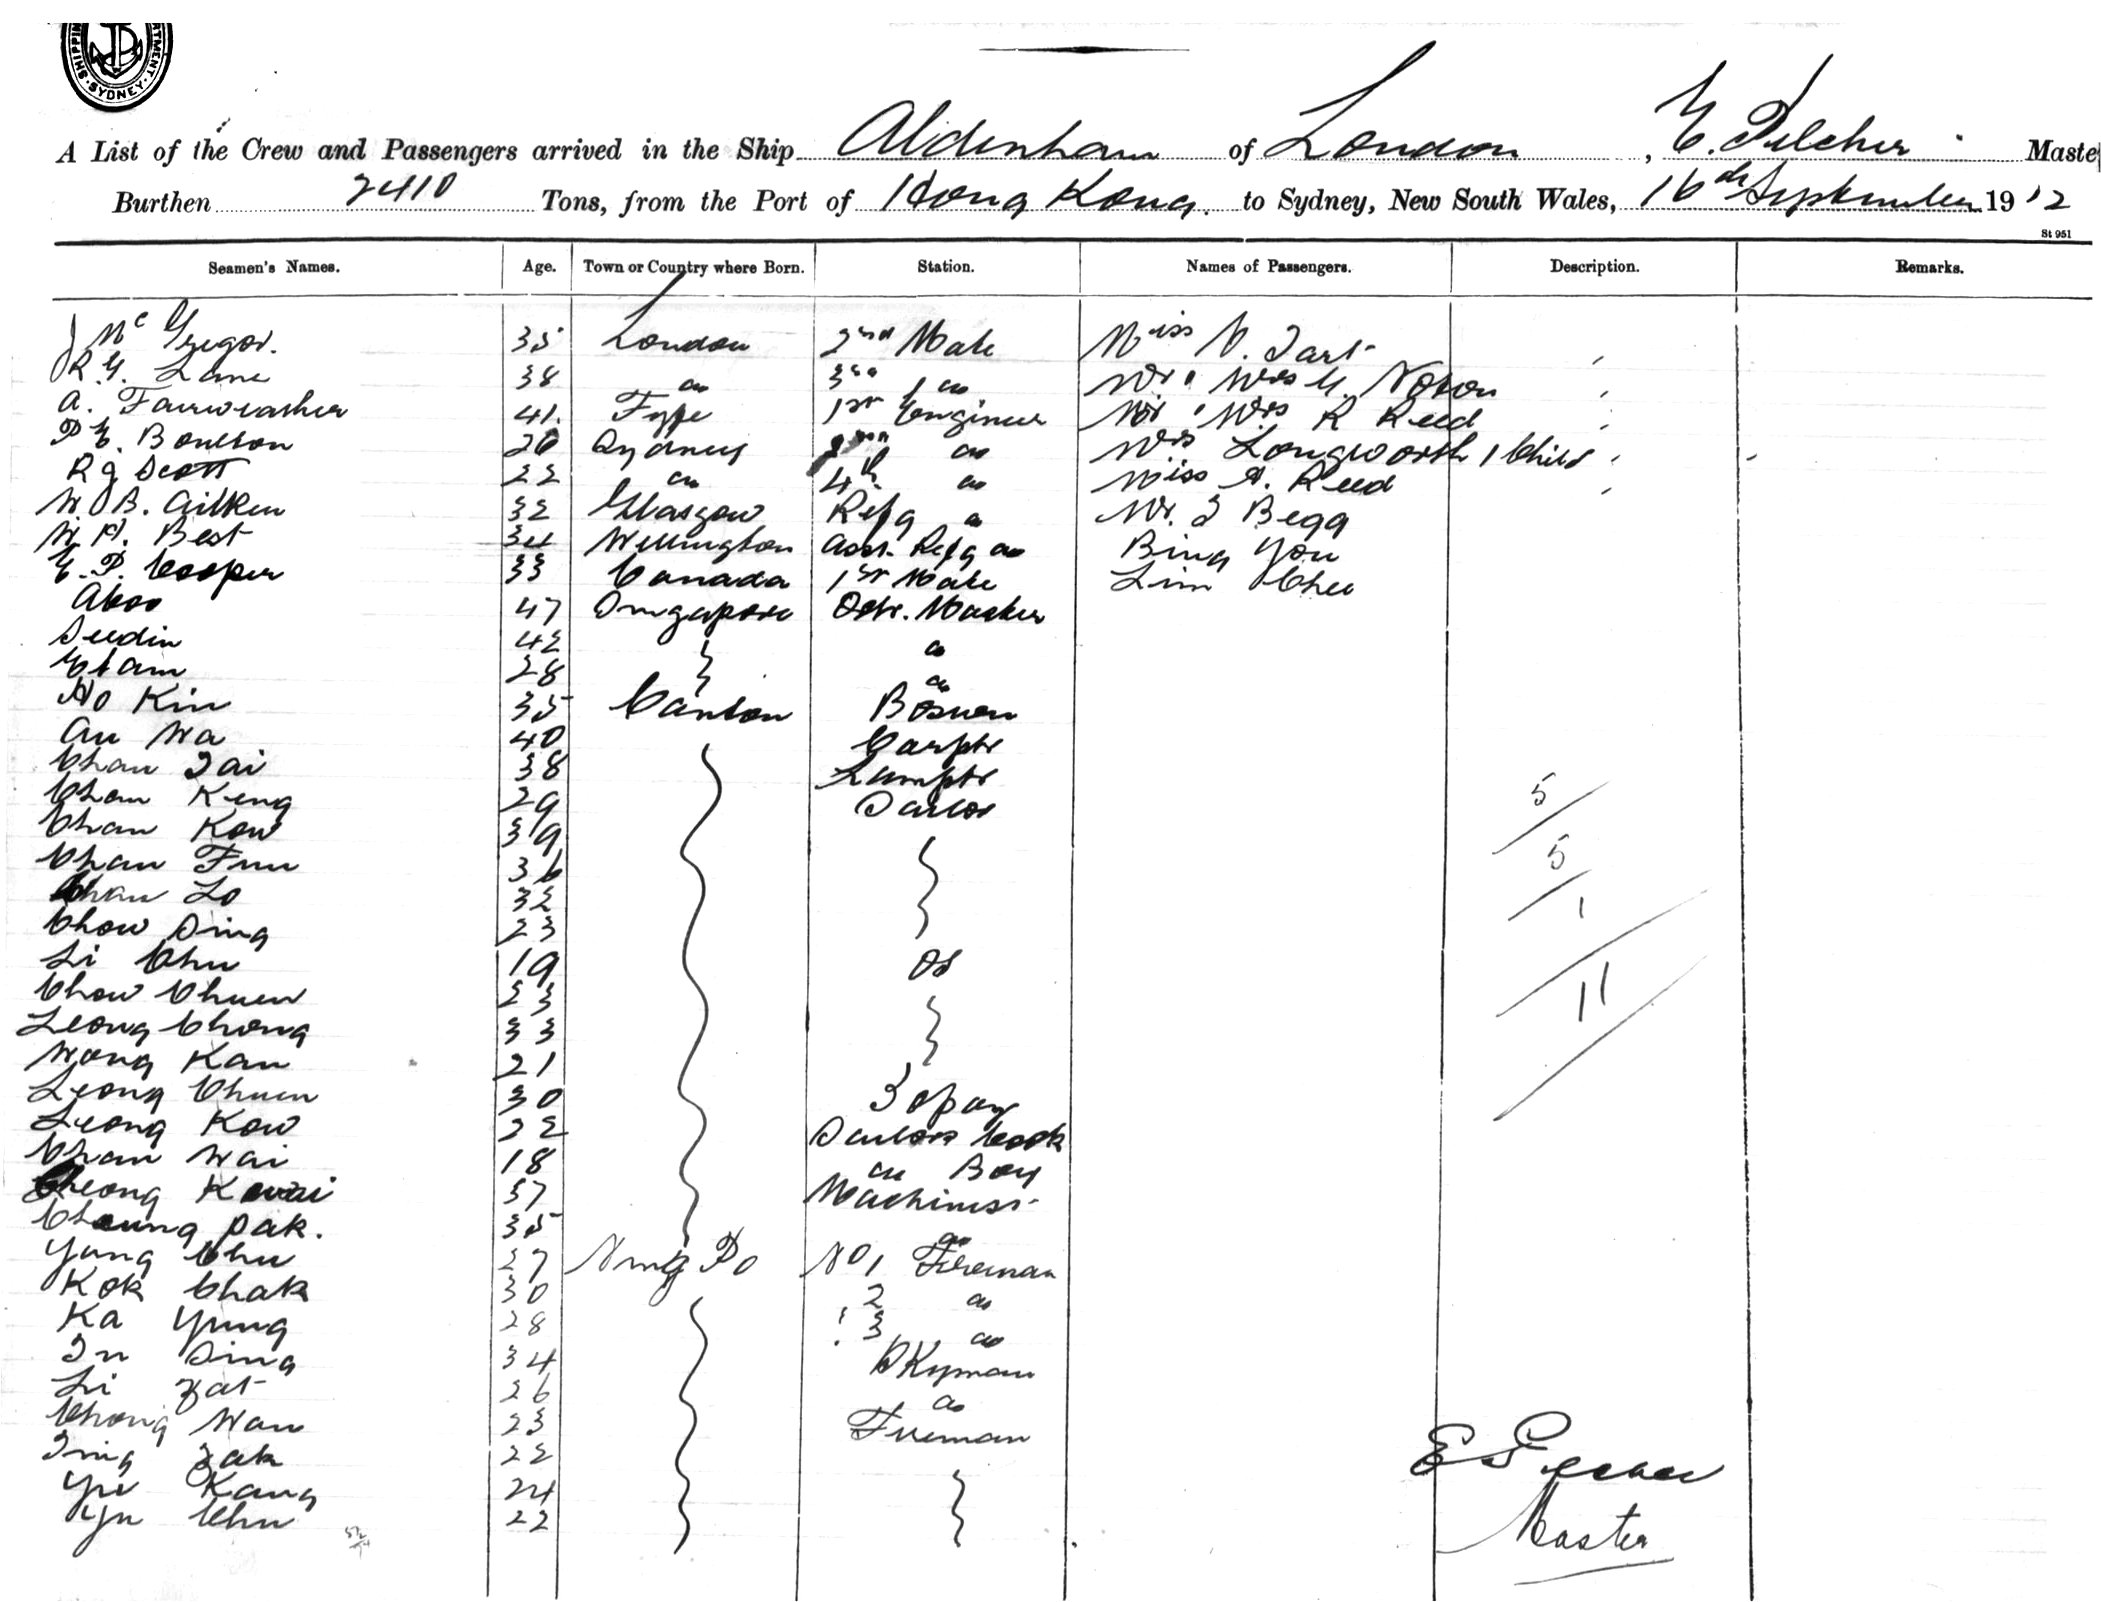 SHIPPIN RTMENT. SYDNEY
A List of the Crew and Passengers arrived in the Ship Aldenham of London, E. Pilcher Maste
Burthen 2410 Tons, from the Port of Hong Kong. to Sydney, New South Wales, 16th September 1912
St 951
Seamen's Names. Age. Town or Country where Born. Station. Names of Passengers. Description. Remarks.
J McGregor. 35 London 2nd Mate Miss V. Tart
R G. Lane 38 do 3rd do Mr & Mrs G. Noxon
A. Fairweather 41. Fyfe 1st Engineer Mr & Mrs R Reed
P E. Boulton 20 Sydney do Mrs Longworth 1 Child
R J Scott 22 do 4th do Miss A. Reed
W B. Aitken 32 Glasgow Refg do Mr. J Begg
W. H. Best 34 Wellington Asst. Refg do Bing You
E. P. Cooper 33 Canada 1st Mate Lim Chee
Aboo 47 Singapore Qtr. Master
Seedin 42 do
Etam 28 do
Ho Kin 35 Canton Bosuen
Au Wa 40 Carptr
Chan Tai 38 Lamptr
Chan Keng 29 Sailor 5
Chan Kow 39
Chan Fuu 36 5
Chan Lo 32
Chow Sing 23 1
Li Chu 19 OS
Chow Chuen 23 11
Leong Chong 33
Wong Kan 21
Leong Chuen 30 Topay
Leong Kow 22 Sailors Cook
Chan Wai 18 do Boy
Cheong Kwai 37 Machinist
Cheung Pak. 35 do
Yung Chu 27 Ning Po No 1 Fireman
Kok Chak 30 2 do
Ka Yung 28 3 do
Tu Sing 34 DKyman
Li Zat 26 do
Chong Wan 23 Fireman
Ting Zak 22
Yu Kang 24
Yu Chu 22
E Pilcher
Master